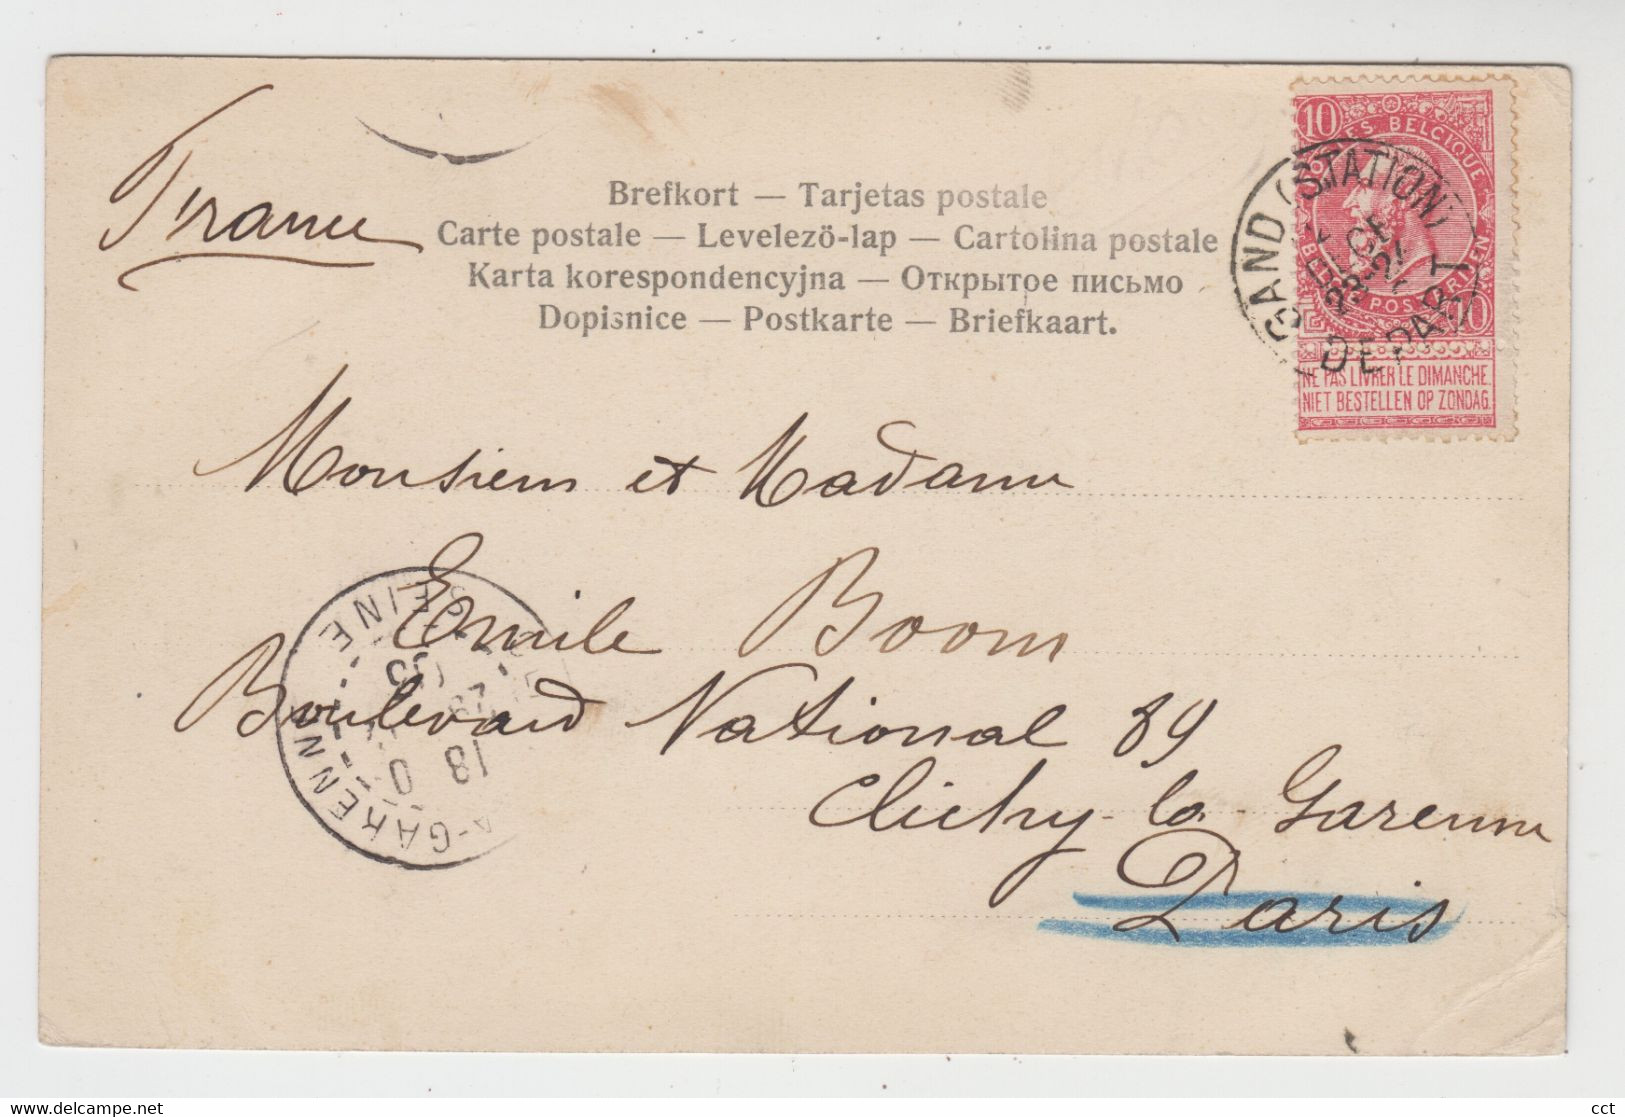 France
Brefkort — Tarjetas postale
Carte postale — Levelezö-lap — Cartolina postale
Karta korespondencyjna — Открытое письмо
Dopisnice — Postkarte — Briefkaart.
10
POSTES BELGIQUE
10
NE PAS LIVRER LE DIMANCHE.
NIET BESTELLEN OP ZONDAG.
GAND (STATION)
DEPART
Monsieur et Madame
Emile Boom
Boulevard National 89
Clichy-la-Garenne
Paris
LA-GARENNE
SEINE
18
cct